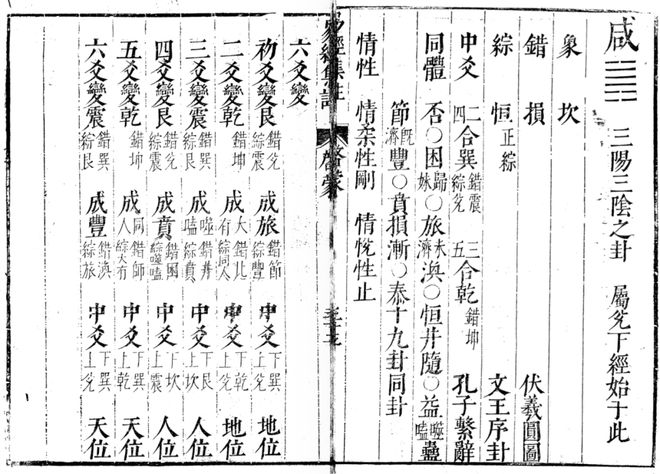 咸䷞ 三陽三陰之卦 屬兌下經始于此
象 坎
錯 損 伏羲圓圖
綜 恒 正綜 文王序卦
中爻 二四合巽 錯震綜兌 三五合乾 錯坤 孔子繫辭
同體 否○困○歸妹○旅○未濟○渙○恒井隨○益○噬嗑○蠱
節○既濟○豐○賁損漸○泰十九卦同卦
情性 情柔性剛 情悅性止
易經集註 啓蒙
六爻變
初爻變艮 錯兌綜震 成旅 錯節綜豐 中爻 下巽上兌 地位
二爻變乾 錯坤 成大有 錯比綜同人 中爻 下乾上兌 地位
三爻變震 錯巽綜艮 成噬嗑 錯井綜賁 中爻 下艮上坎 人位
四爻變艮 錯兌綜震 成賁 錯困綜噬嗑 中爻 下坎上震 人位
五爻變乾 錯坤 成同人 錯師綜大有 中爻 下巽上乾 天位
六爻變震 錯巽綜艮 成豐 錯渙綜旅 中爻 下巽上兌 天位